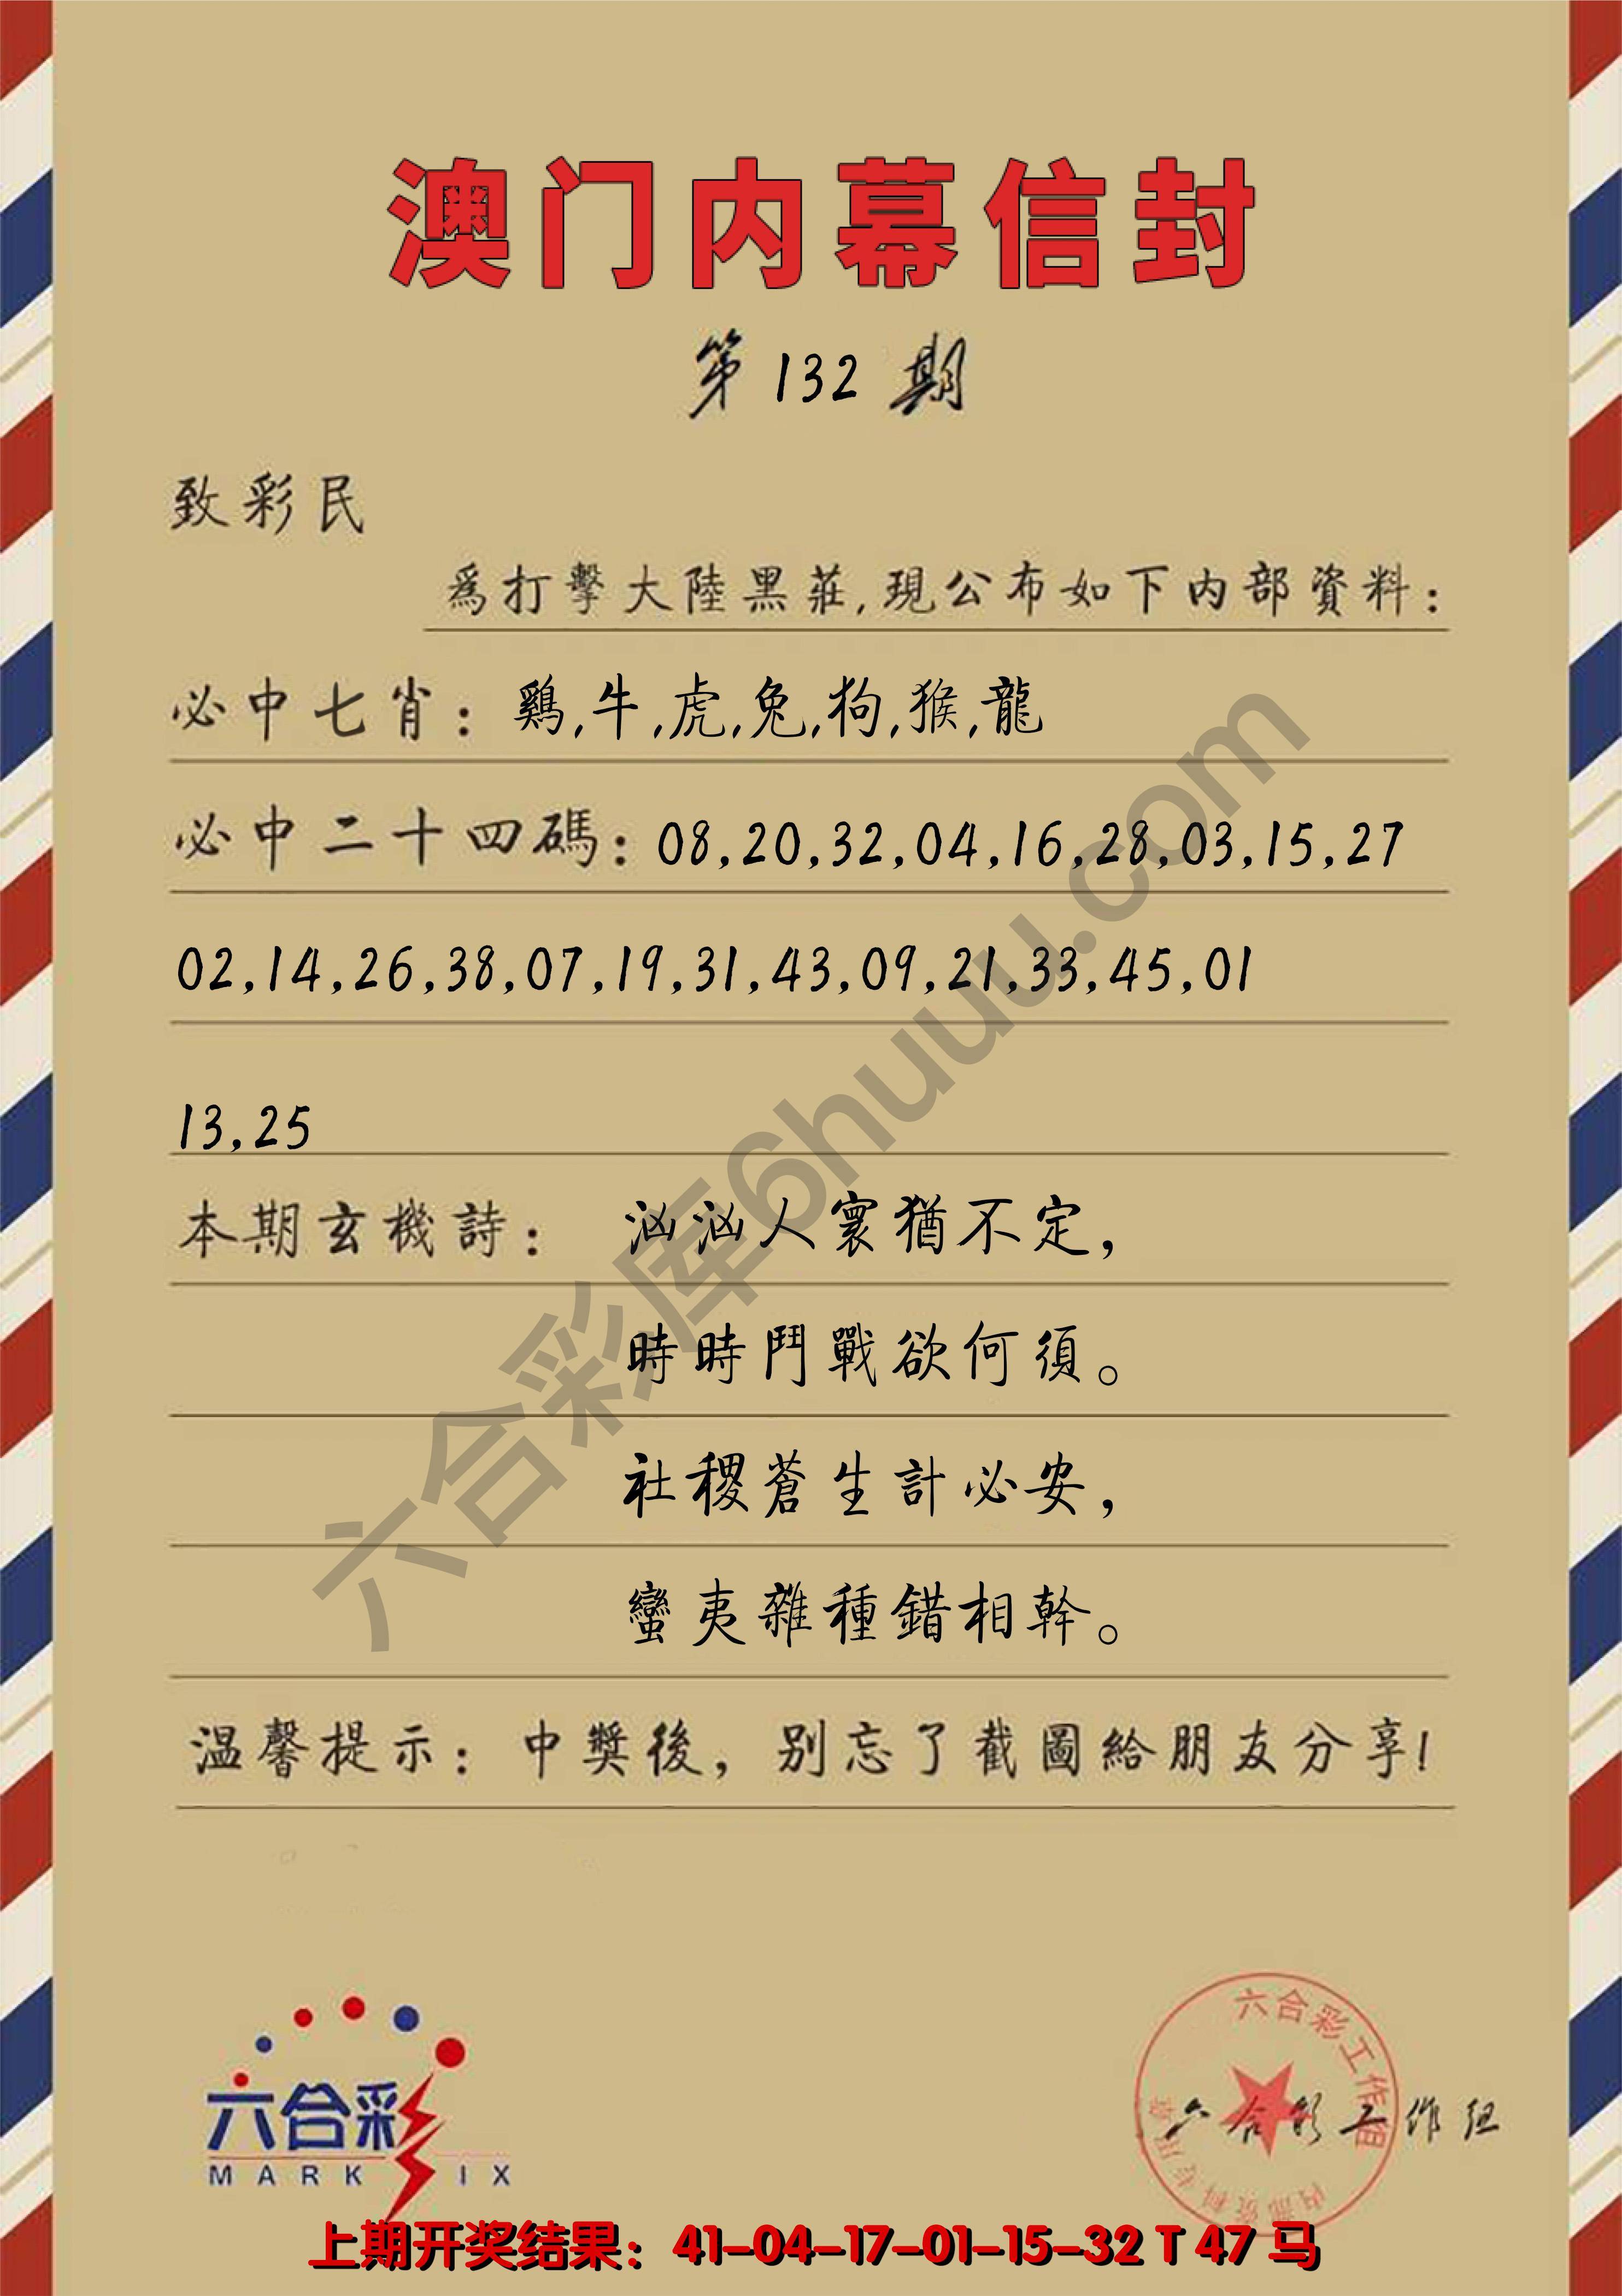 澳门内幕信封
第 132 期
致彩民
為打擊大陸黑莊,現公布如下内部資料:
必中七肖: 鷄,牛,虎,兔,狗,猴,龍
必中二十四碼: 08,20,32,04,16,28,03,15,27
02,14,26,38,07,19,31,43,09,21,33,45,01
13,25
本期玄機詩: 汹汹人寰猶不定,
時時鬥戰欲何須。
社稷蒼生計必安,
蠻夷雜種錯相幹。
温馨提示: 中獎後, 别忘了截圖給朋友分享!
六合彩库6huuu.com
六合彩
MARK IX
六合彩工作组
内部资料专用章
六合彩工作组
上期开奖结果: 41-04-17-01-15-32 T 47 马